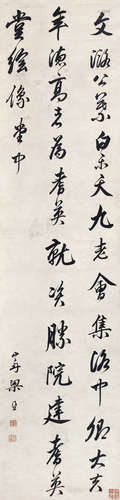 文潞公慕白乐天九老會集洛中卿大夫
年德高者為耆英就资勝院建耆英
堂绘像堂中
山舟梁同書